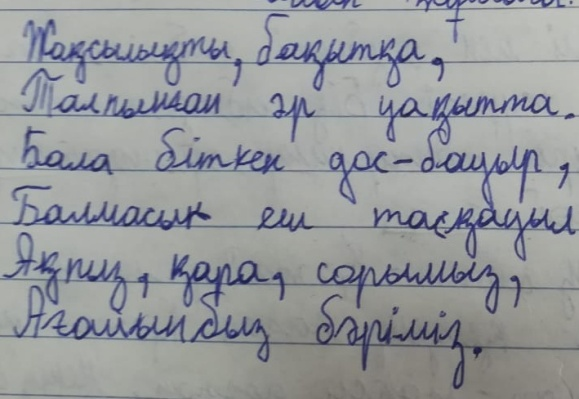 Жақсылықты, бақытқа,
Талпынған әр уақытта.
Бала біткен дос-бауыр,
Балмасын еш тасқауыл
Ақпыз, қара, сарымыз,
Ағайынбыз бәріміз.